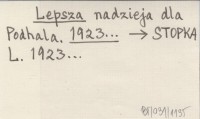 Lepsza nadzieja dla
Podhala. 1923... → STOPKA
L. 1923...